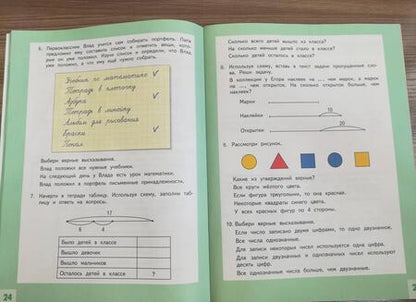 6. Первоклассник Влад учится сам собирать портфель. Папа
предложил ему составить список и отметить вещи, которые
уже он уже положил. Изучи список и определи, что Влад
уже положил, а что ему ещё нужно собрать.
Учебник по математике ✓
Тетрадь в клеточку
Азбука ✓
Тетрадь в линейку
Альбом для рисования
Краски ✓
Пенал
Выбери верные высказывания.
Влад положил все нужные учебники.
На следующий день у Влада есть урок математики.
Влад положил в портфель письменные принадлежности.
7. Начерти в тетради таблицу. Используя схему, заполни таблицу
и ответь на вопросы.
17
6 4
Было детей в классе
Вышло девочек
Вышло мальчиков
Осталось детей в классе ?
24
Сколько всего детей вышло из класса?
На сколько меньше детей стало в классе?
Сколько детей осталось в классе?
8. Используя схему, вставь в текст задачи пропущенные слова.
Реши задачу.
В коллекции у Егора наклеек на ... чем марок, а марок
на ... чем открыток. На сколько открыток больше, чем
наклеек?
Марки
10
Наклейки
20
Открытки
9. Рассмотри рисунок.
Какие из утверждений верные?
Все круги жёлтого цвета.
Если фигура треугольник, то она красная.
Некоторые квадраты синего цвета.
У всех красных фигур по 4 стороны.
10. Выбери верные высказывания.
Если число записано двумя цифрами, то оно двузначное.
Все числа однозначные.
Для записи некоторых чисел используется одна цифра.
Для записи двузначных и однозначных чисел используют
десять цифр.
Все однозначные числа больше, чем двузначные.